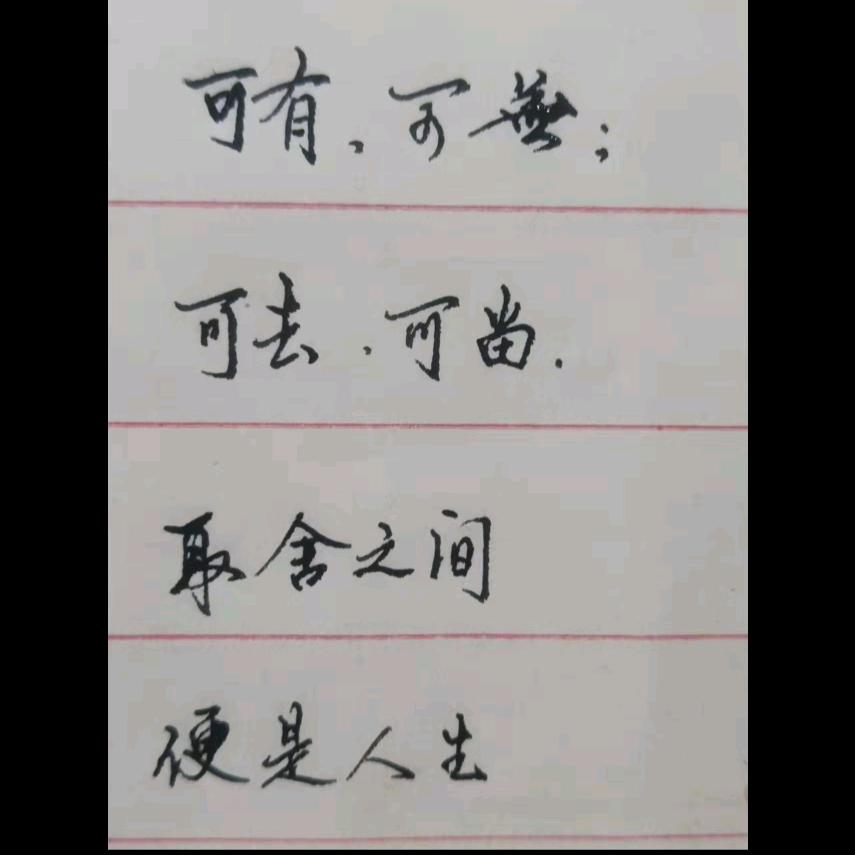 可有、可無；
可去、可留.
取舍之间
便是人生